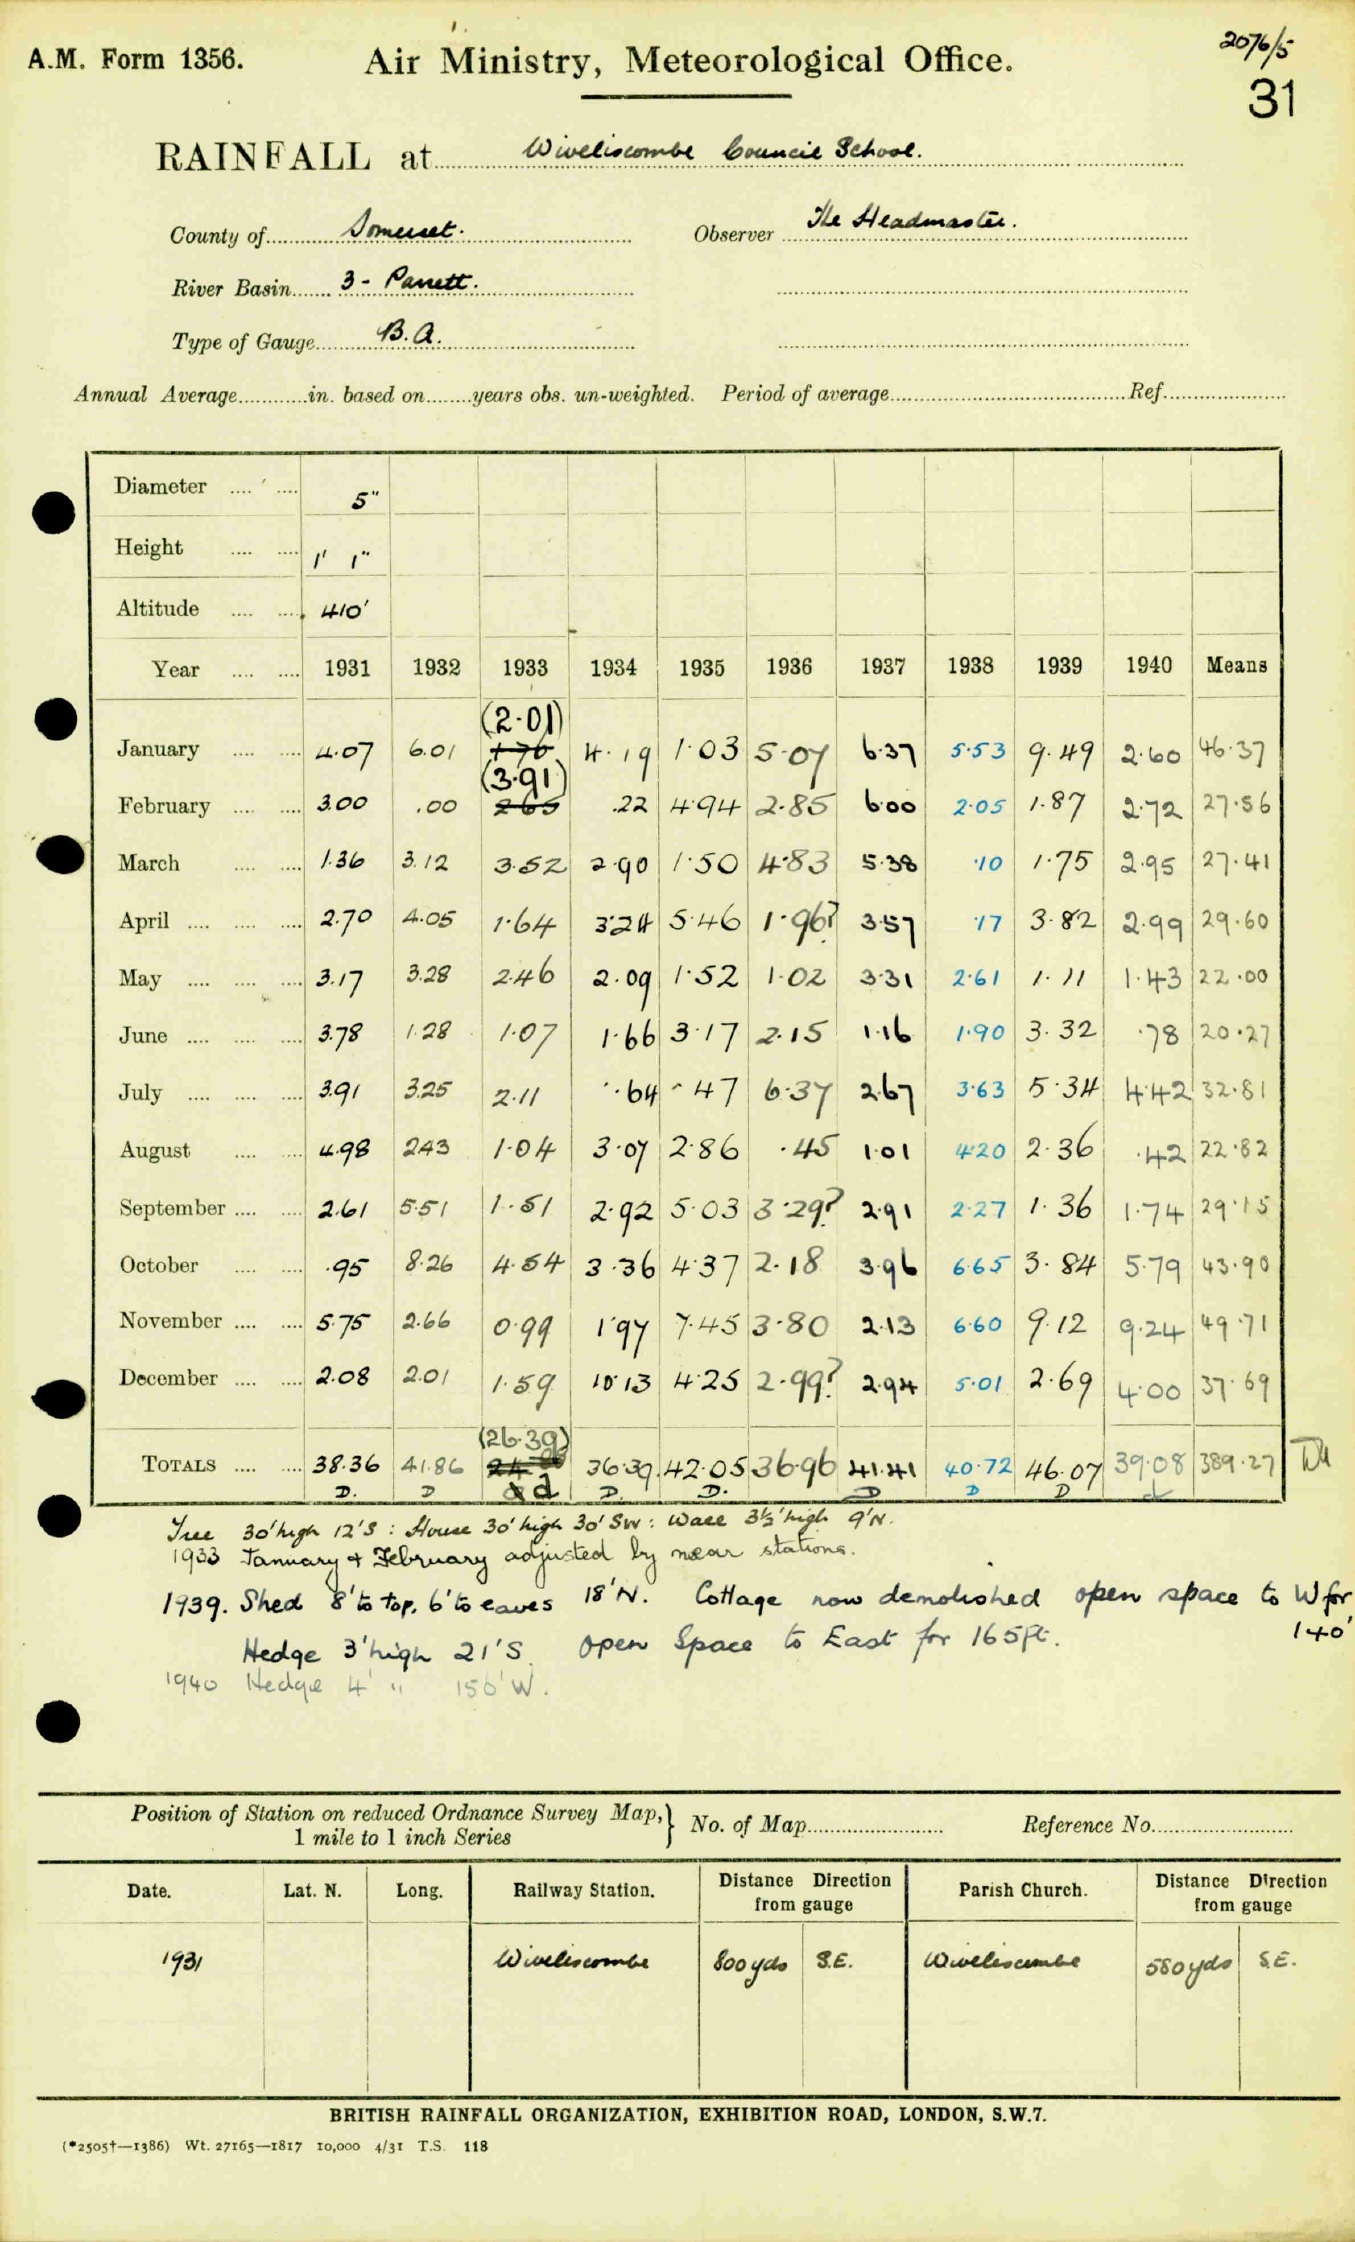 2076/5
A.M. Form 1356. Air Ministry, Meteorological Office.
31
RAINFALL at Wiveliscombe Council School.
County of Somerset. Observer The Headmaster.
River Basin 3 - Parrett.
Type of Gauge B.A.
Annual Average............in. based on........years obs. un-weighted. Period of average........................................Ref.....................
Diameter .... .... 5"
Height .... .... 1' 1"
Altitude .... .... 410'
Year .... .... 1931 1932 1933 1934 1935 1936 1937 1938 1939 1940 Means
(2.01)
January .... .... 4.07 6.01 1.76 4.19 1.03 5.07 6.37 5.53 9.49 2.60 46.37
(3.91)
February .... .... 3.00 .00 2.65 .22 4.94 2.85 6.00 2.05 1.87 2.72 27.56
March .... .... 1.36 3.12 3.52 2.90 1.50 4.83 5.38 .10 1.75 2.95 27.41
April .... .... .... 2.70 4.05 1.64 3.24 5.46 1.96? 3.57 .17 3.82 2.99 29.60
May .... .... .... 3.17 3.28 2.46 2.09 1.52 1.02 3.31 2.61 1.11 1.43 22.00
June .... .... .... 3.78 1.28 1.07 1.66 3.17 2.15 1.16 1.90 3.32 .78 20.27
July .... .... .... 3.91 3.25 2.11 .64 .47 6.37 2.67 3.63 5.34 4.42 32.81
August .... .... 4.98 2.43 1.04 3.07 2.86 .45 1.01 4.20 2.36 .42 22.82
September .... .... 2.61 5.51 1.51 2.92 5.03 3.29? 2.91 2.27 1.36 1.74 29.15
October .... .... .95 8.26 4.54 3.36 4.37 2.18 3.96 6.65 3.84 5.79 43.90
November .... .... 5.75 2.66 0.99 1.97 7.45 3.80 2.13 6.60 9.12 9.24 49.71
December .... .... 2.08 2.01 1.59 10.13 4.25 2.99? 2.94 5.01 2.69 4.00 37.69
(26.39)
TOTALS .... .... 38.36 41.86 36.39 42.05 36.96 41.41 40.72 46.07 39.08 389.27
D. D d D. D. D D D d
Tree 30' high 12'S : House 30' high 30' SW : Wall 3½' high 9'N.
1933 January & February adjusted by near stations.
1939. Shed 8' to top, 6' to eaves 18'N. Cottage now demolished open space to W for 140'
Hedge 3' high 21'S. Open Space to East for 165ft.
1940 Hedge 4' " 150' W.
Position of Station on reduced Ordnance Survey Map,} No. of Map........................ Reference No.........................
1 mile to 1 inch Series
Date. Lat. N. Long. Railway Station. Distance Direction from gauge Parish Church. Distance Direction from gauge
1931 Wiveliscombe 800 yds S.E. Wiveliscombe 580 yds S.E.
BRITISH RAINFALL ORGANIZATION, EXHIBITION ROAD, LONDON, S.W.7.
(*2505†—1386) Wt. 27165—1817 10,000 4/31 T.S. 118